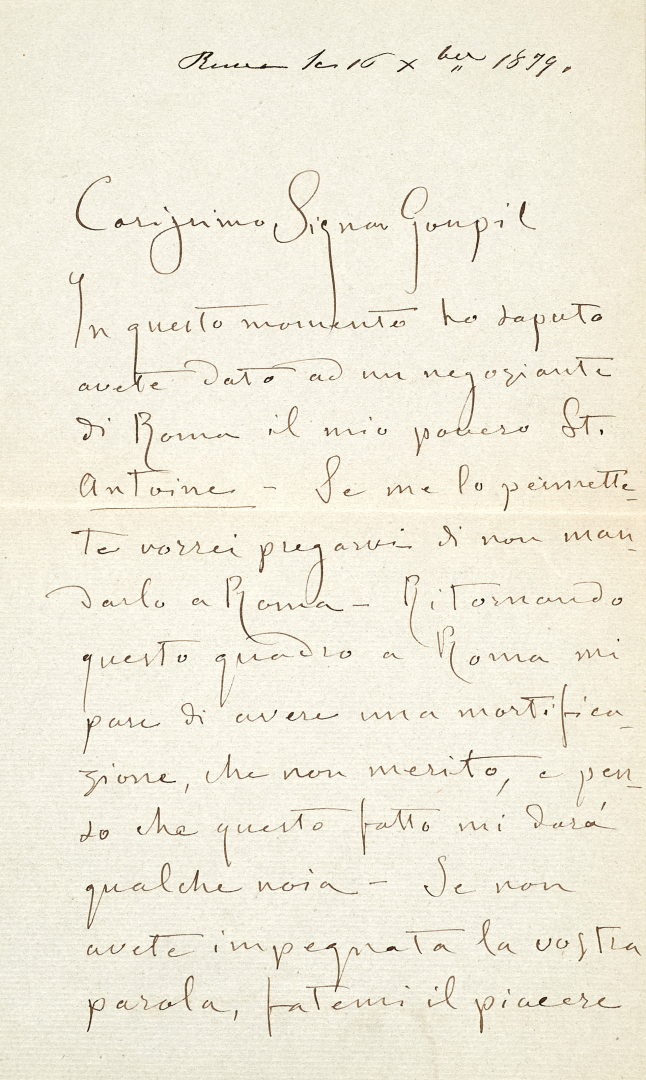 Roma le 16 Xber 1879.
Carissimo Signor Goupil
In questo momento ho saputo
avete dato ad un negoziante
di Roma il mio povero St.
Antoine - Se me lo permette-
te vorrei pregarvi di non man-
darlo a Roma - Ritornando
questo quadro a Roma mi
pare di avere una mortifica-
zione, che non merito, e pen-
so che questo fatto mi dará
qualche noia - Se non
avete impegnata la vostra
parola, fatemi il piacere